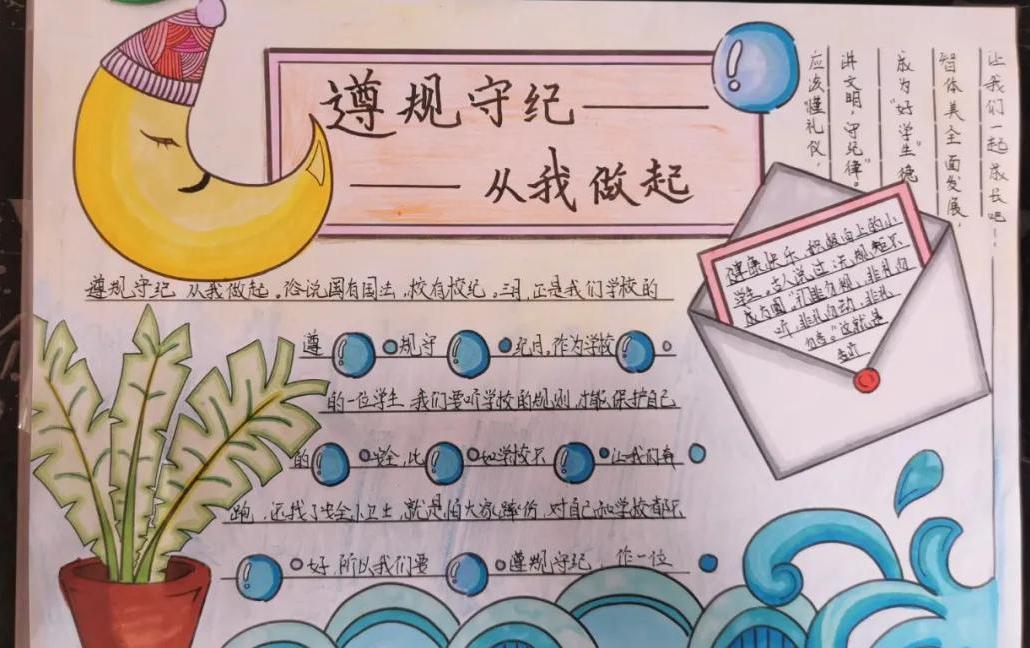 遵规守纪——
——从我做起
遵规守纪,从我做起。俗说国有国法,校有校纪,三月,正是我们学校的
遵规守纪月,作为学校
的一位学生,我们要听学校的规则,才能保护自己
的安全,比如学校不让我们奔
跑,还找了安全小卫士,就是怕大家摔伤,对自己和学校都不
好,所以我们要遵规守纪,作一位
健康快乐,积极向上的小
学生。古人说过:"无规矩不
成方圆。"孔雎有规,"非礼勿
听,非礼勿动,非礼
勿言。"这就是
告诉
应该懂礼仪,
讲文明,守纪律。
成为"好学生"德
智体美全面发展,
让我们一起成长吧!